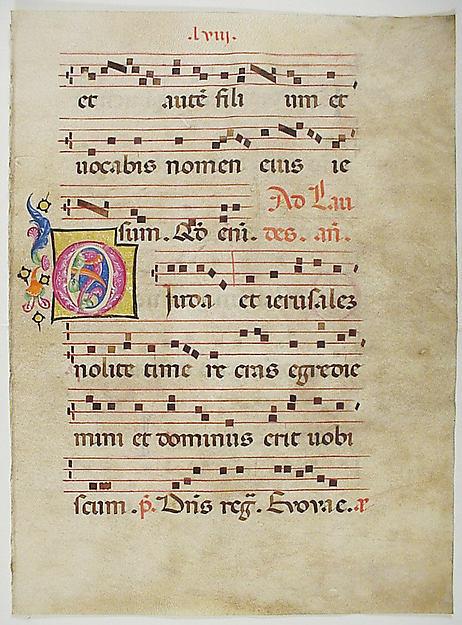 .lviij.
et autē fili um et
uocabis nomen eius ie
Ad Lau
sum. Qd eni. des. añ.
O Iuda et ierusalez
nolite time re cras egredie
mini et dominus erit uobi
scum. p̄. Dñs reg. Evovae.